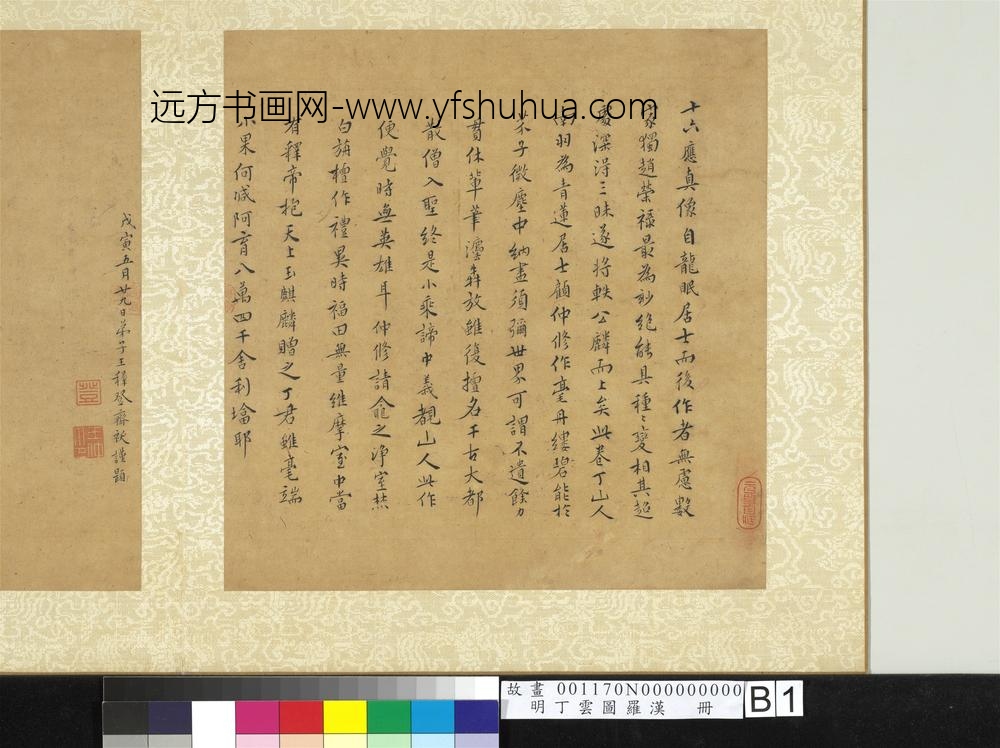 远方书画网-www.yfshuhua.com
十六應真像自龍眠居士而後作者無慮數
家獨趙榮祿最為妙絶能具種〻變相其超
深得三昧遂將軼公麟而上矣此卷丁山人
羽為青蓮居士顧仲修作毫丹縷碧能於
芥子微塵中納盡須彌世界可謂不遺餘力
貫休輩筆瀋犇放雖復擅名千古大都
散僧入聖終是小乘諦中義覩山人此作
便覺時無英雄耳仲修請龕之净室焚
白旃檀作禮異時福田無量維摩室中當
有釋帝抱天上玉麒麟贈之丁君雖毫端
小果何减阿育八萬四千舍利墖耶
戊寅五月廿九日弟子王穉登齋祓謹題
故畫 001170N000000000
明丁雲圖羅漢 冊
B 1